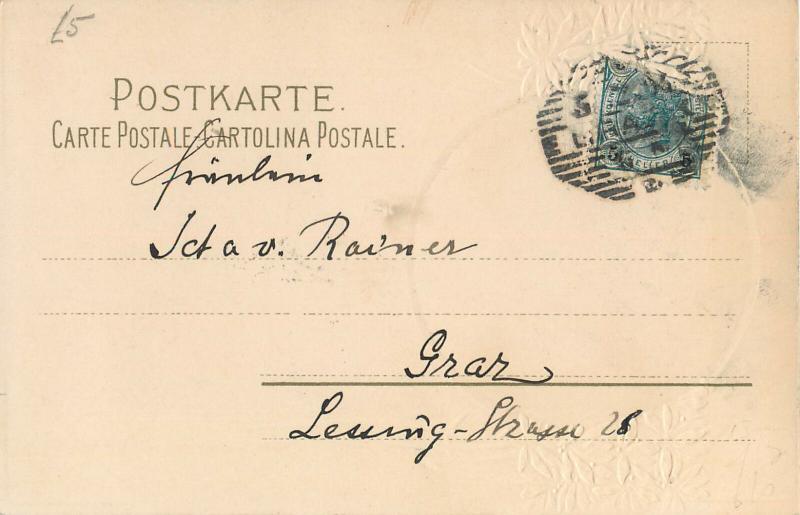 £5
POSTKARTE.
CARTE POSTALE-CARTOLINA POSTALE.
5 HELLER 5
Fräulein
Icta v. Rainer
Graz
Lessing-Strasse 28